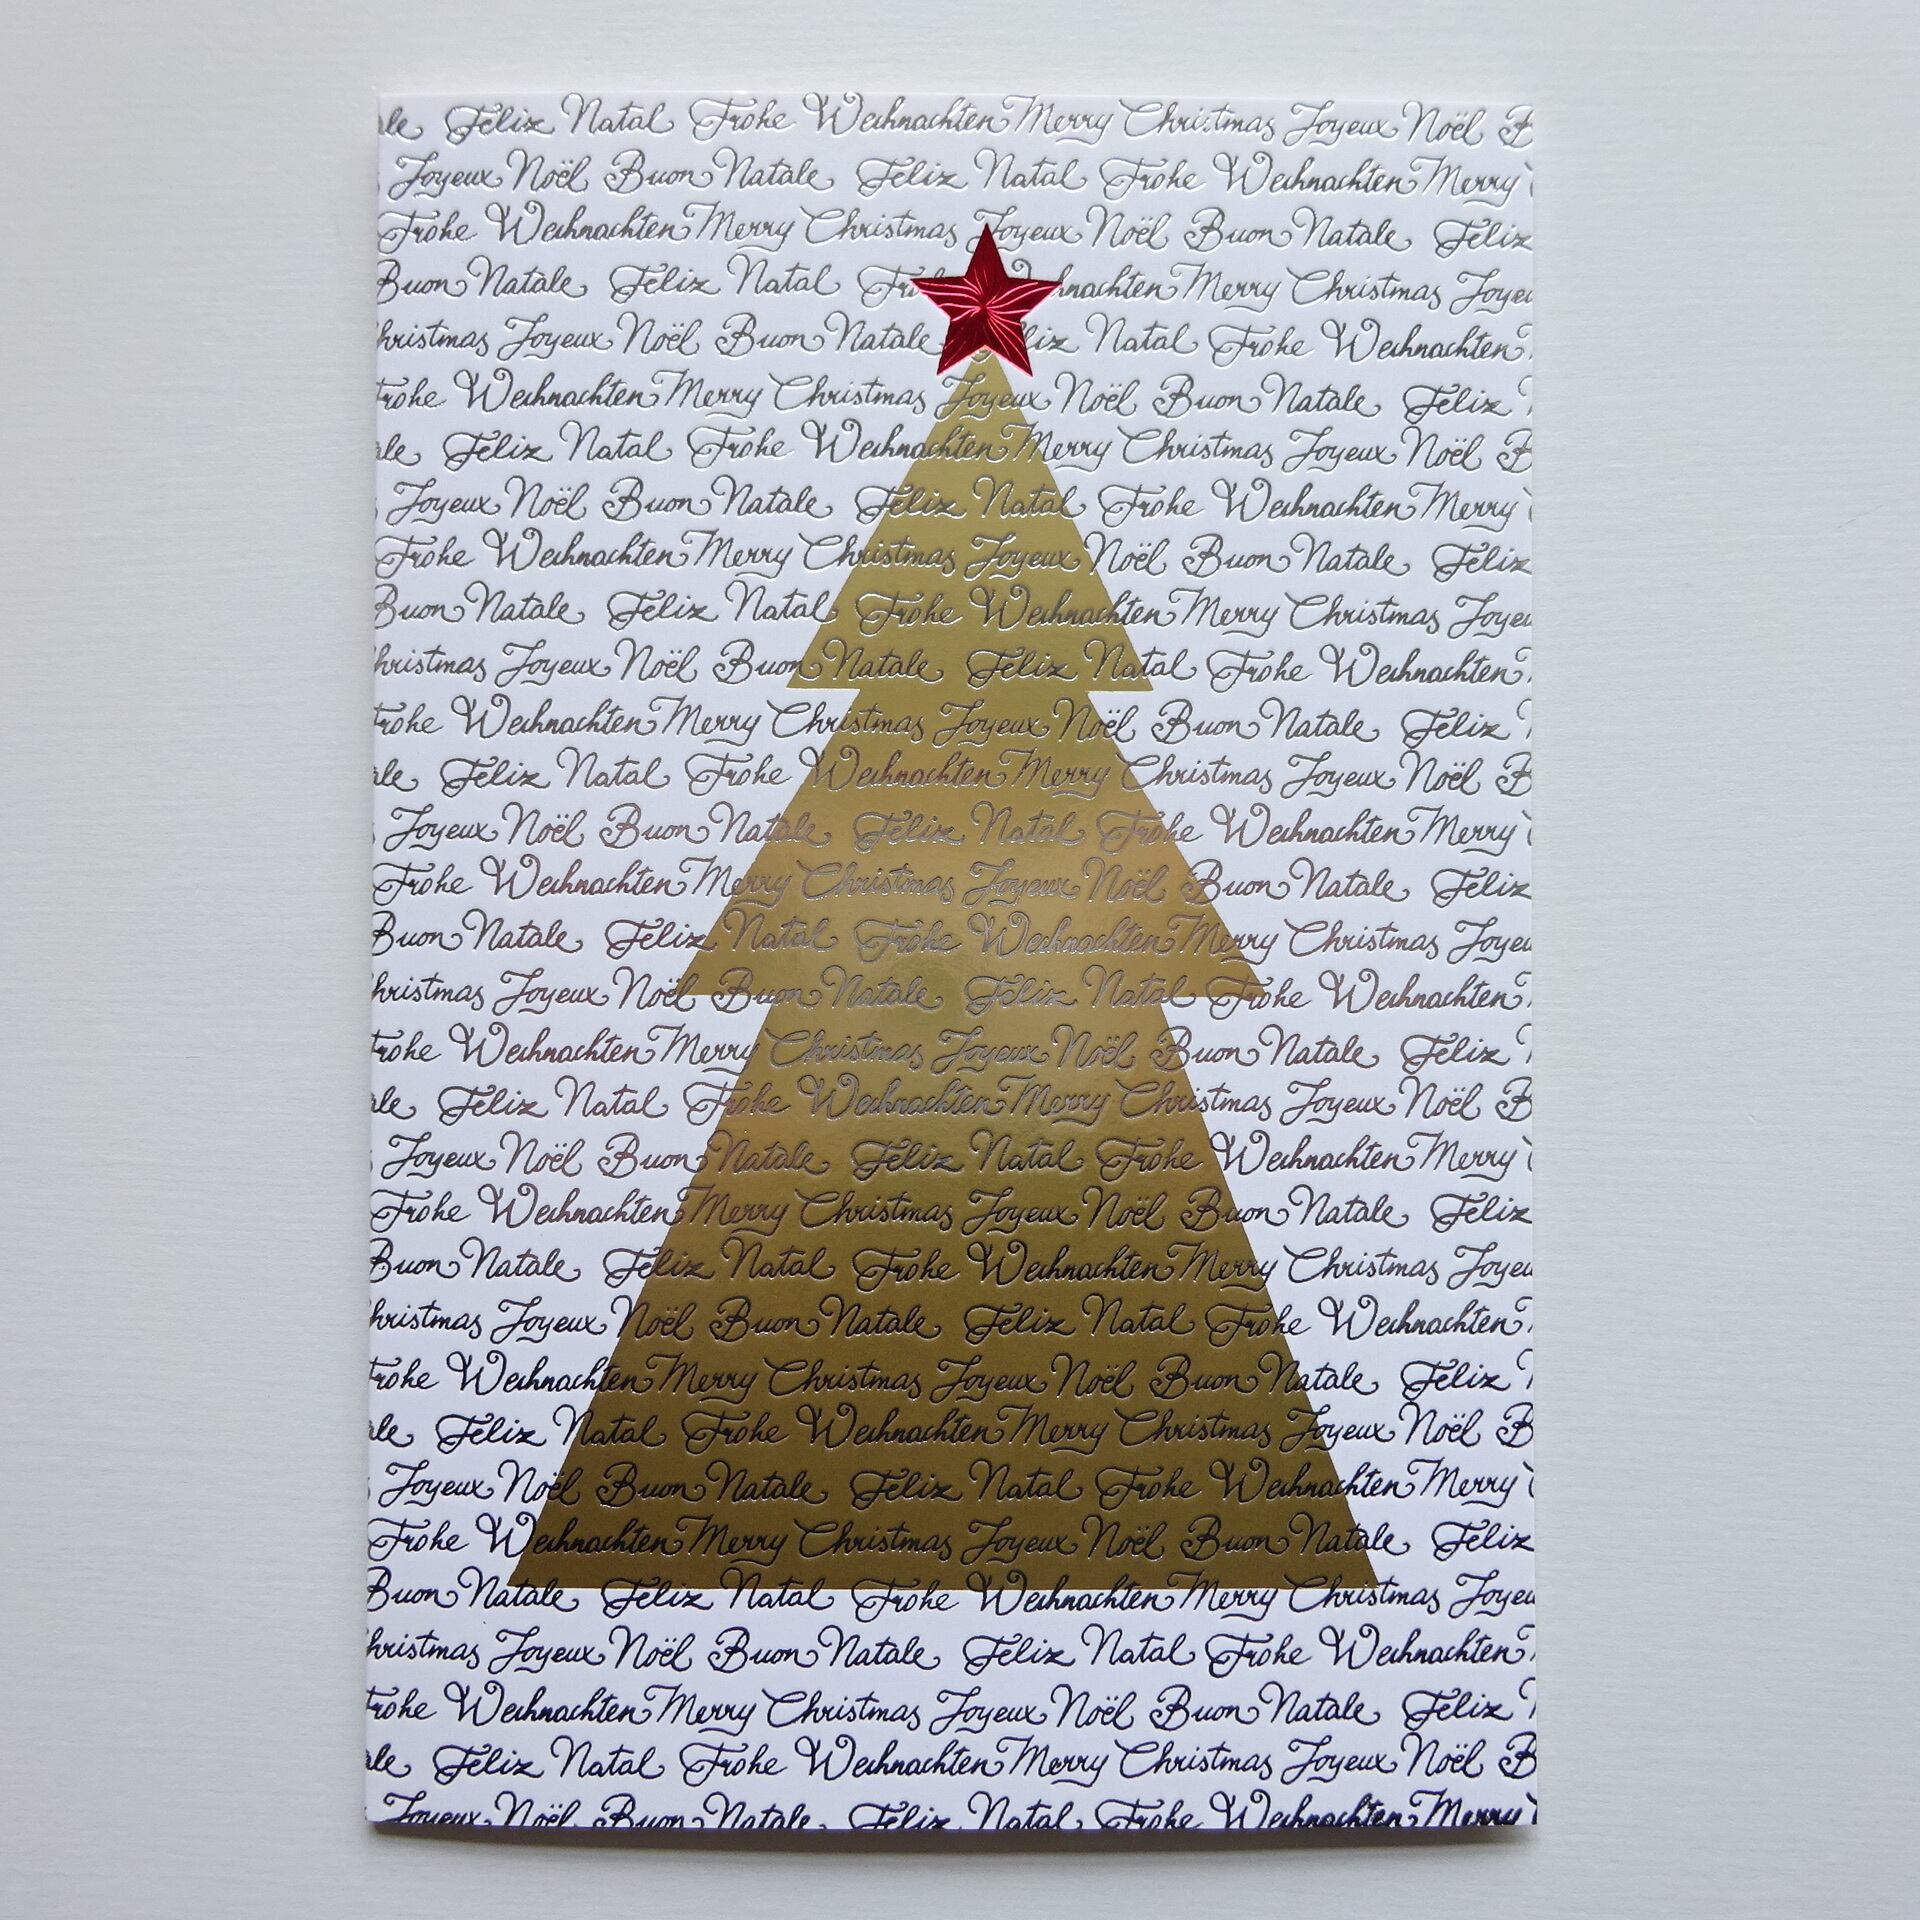 ale Feliz Natal Frohe Weihnachten Merry Christmas Joyeux Noël B
Joyeux Noël Buon Natale Feliz Natal Frohe Weihnachten Merry
Frohe Weihnachten Merry Christmas Joyeux Noël Buon Natale Feliz
Buon Natale Feliz Natal Fr hnachten Merry Christmas Joyeu
hristmas Joyeux Noël Buon Natale liz Natal Frohe Weihnachten
rohe Weihnachten Merry Christmas Joyeux Noël Buon Natale Feliz
ale Feliz Natal Frohe Weihnachten Merry Christmas Joyeux Noël B
Joyeux Noël Buon Natale Feliz Natal Frohe Weihnachten Merry
Frohe Weihnachten Merry Christmas Joyeux Noël Buon Natale Feliz
Buon Natale Feliz Natal Frohe Weihnachten Merry Christmas Joyeu
hristmas Joyeux Noël Buon Natale Feliz Natal Frohe Weihnachten
rohe Weihnachten Merry Christmas Joyeux Noël Buon Natale Feliz
ale Feliz Natal Frohe Weihnachten Merry Christmas Joyeux Noël B
Joyeux Noël Buon Natale Feliz Natal Frohe Weihnachten Merry
Frohe Weihnachten Merry Christmas Joyeux Noël Buon Natale Feliz
Buon Natale Feliz Natal Frohe Weihnachten Merry Christmas Joyeu
hristmas Joyeux Noël Buon Natale Feliz Natal Frohe Weihnachten
rohe Weihnachten Merry Christmas Joyeux Noël Buon Natale Feliz
ale Feliz Natal Frohe Weihnachten Merry Christmas Joyeux Noël B
Joyeux Noël Buon Natale Feliz Natal Frohe Weihnachten Merry
Frohe Weihnachten Merry Christmas Joyeux Noël Buon Natale Feliz
Buon Natale Feliz Natal Frohe Weihnachten Merry Christmas Joyeu
hristmas Joyeux Noël Buon Natale Feliz Natal Frohe Weihnachten
rohe Weihnachten Merry Christmas Joyeux Noël Buon Natale Feliz
ale Feliz Natal Frohe Weihnachten Merry Christmas Joyeux Noël B
Joyeux Noël Buon Natale Feliz Natal Frohe Weihnachten Merry
Frohe Weihnachten Merry Christmas Joyeux Noël Buon Natale Feliz
Buon Natale Feliz Natal Frohe Weihnachten Merry Christmas Joyeu
hristmas Joyeux Noël Buon Natale Feliz Natal Frohe Weihnachten
rohe Weihnachten Merry Christmas Joyeux Noël Buon Natale Feliz
ale Feliz Natal Frohe Weihnachten Merry Christmas Joyeux Noël B
Joyeux Noël Buon Natale Feliz Natal Frohe Weihnachten Merry